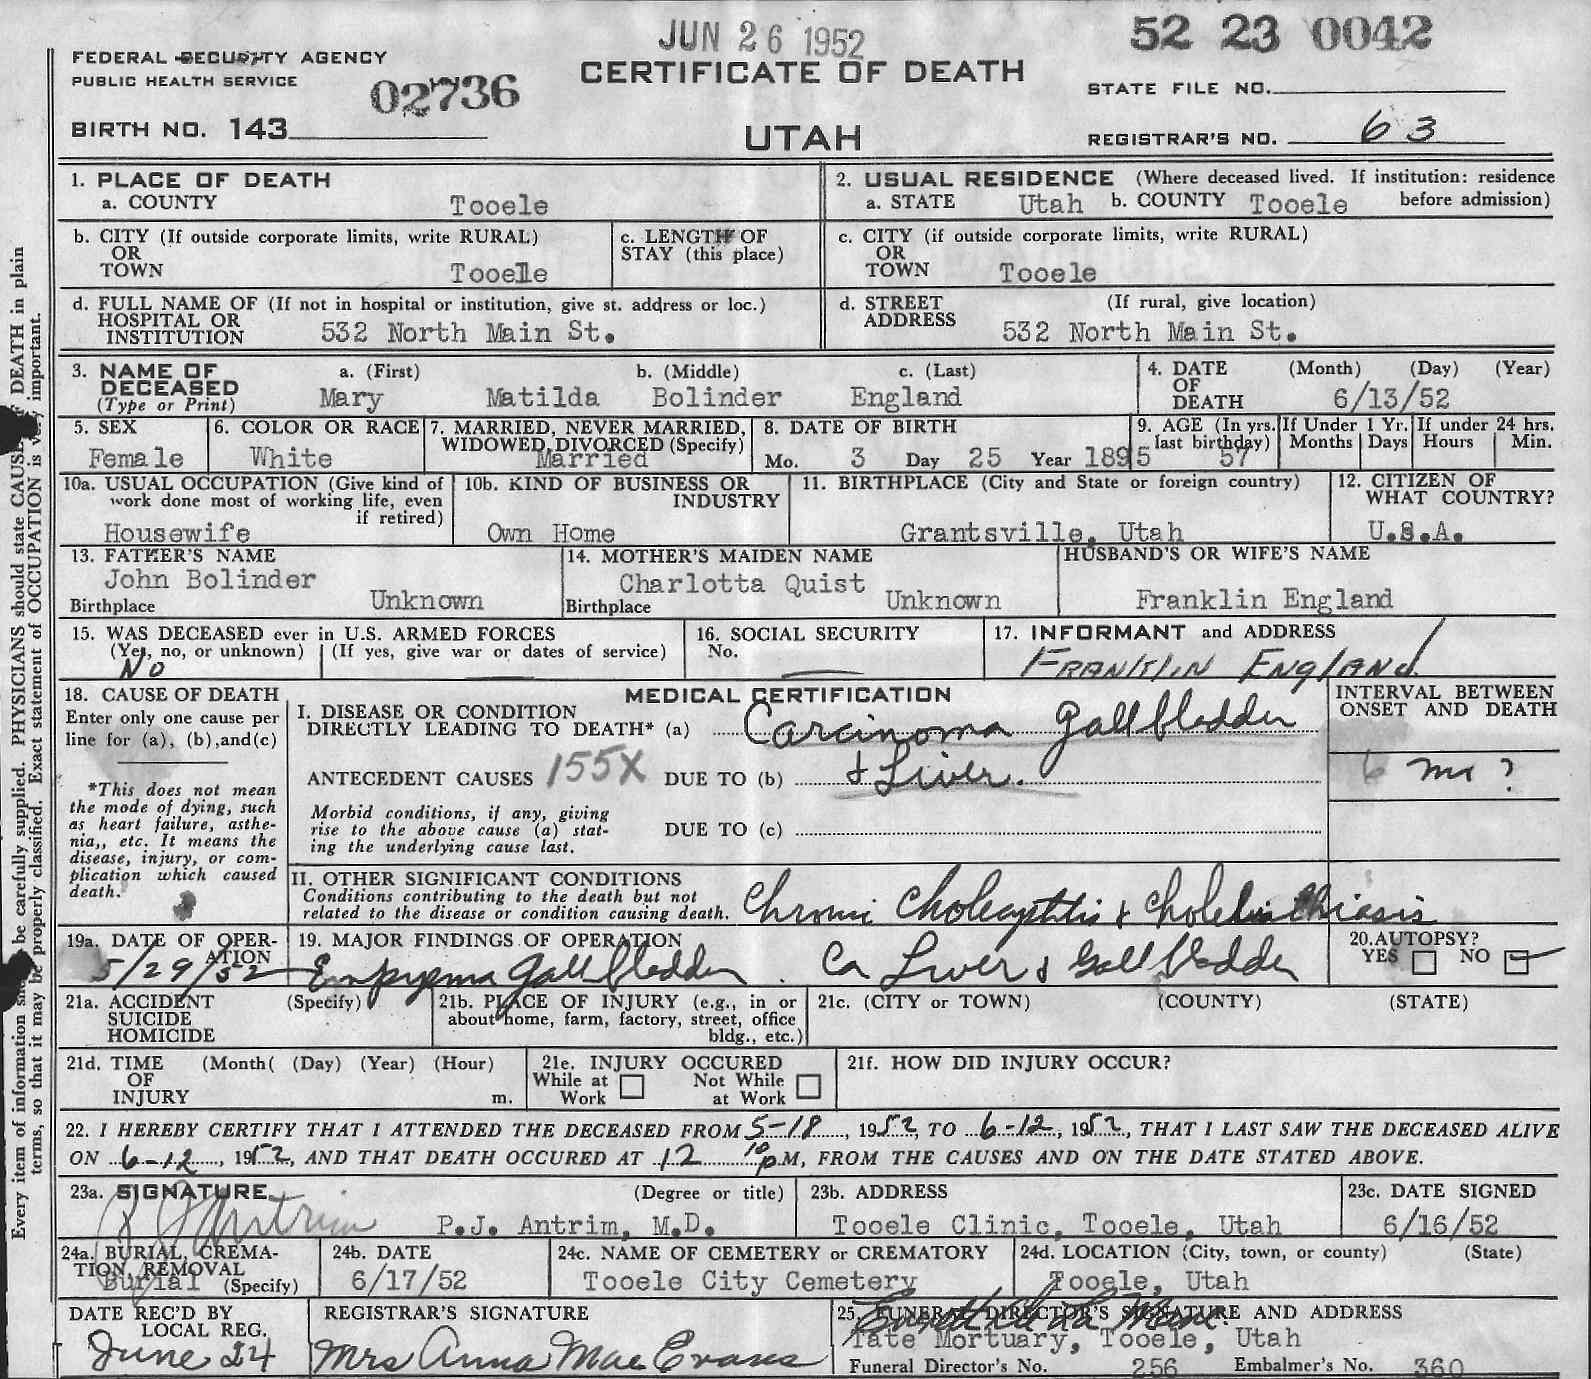 JUN 26 1952
52 23 0042
FEDERAL SECURITY AGENCY
PUBLIC HEALTH SERVICE
02736
CERTIFICATE OF DEATH
STATE FILE NO.
BIRTH NO. 143
UTAH
REGISTRAR'S NO. 63
1. PLACE OF DEATH
a. COUNTY Tooele
2. USUAL RESIDENCE (Where deceased lived. If institution: residence before admission)
a. STATE Utah b. COUNTY Tooele
b. CITY (If outside corporate limits, write RURAL)
OR
TOWN Tooele
c. LENGTH OF
STAY (this place)
c. CITY (if outside corporate limits, write RURAL)
OR
TOWN Tooele
d. FULL NAME OF (If not in hospital or institution, give st. address or loc.)
HOSPITAL OR
INSTITUTION 532 North Main St.
d. STREET (If rural, give location)
ADDRESS 532 North Main St.
3. NAME OF DECEASED
(Type or Print)
a. (First) b. (Middle) c. (Last)
Mary Matilda Bolinder England
4. DATE OF DEATH (Month) (Day) (Year)
6/13/52
5. SEX
Female
6. COLOR OR RACE
White
7. MARRIED, NEVER MARRIED,
WIDOWED, DIVORCED (Specify)
Married
8. DATE OF BIRTH
Mo. 3 Day 25 Year 1895
9. AGE (In yrs. last birthday) 57
If Under 1 Yr. Months Days
If under 24 hrs. Hours Min.
10a. USUAL OCCUPATION (Give kind of
work done most of working life, even
if retired)
Housewife
10b. KIND OF BUSINESS OR
INDUSTRY
Own Home
11. BIRTHPLACE (City and State or foreign country)
Grantsville, Utah
12. CITIZEN OF
WHAT COUNTRY?
U.S.A.
13. FATHER'S NAME
John Bolinder
Birthplace Unknown
14. MOTHER'S MAIDEN NAME
Charlotta Quist
Birthplace Unknown
HUSBAND'S OR WIFE'S NAME
Franklin England
15. WAS DECEASED ever in U.S. ARMED FORCES
(Yes, no, or unknown) (If yes, give war or dates of service)
No
16. SOCIAL SECURITY
No.
17. INFORMANT and ADDRESS
FRANKLIN ENGLAND
18. CAUSE OF DEATH
Enter only one cause per
line for (a), (b), and (c)
*This does not mean
the mode of dying, such
as heart failure, asthe-
nia,, etc. It means the
disease, injury, or com-
plication which caused
death.
MEDICAL CERTIFICATION
I. DISEASE OR CONDITION
DIRECTLY LEADING TO DEATH* (a) Carcinoma Gallbladder
ANTECEDENT CAUSES 155X DUE TO (b) & Liver.
Morbid conditions, if any, giving
rise to the above cause (a) stat-
ing the underlying cause last.
DUE TO (c)
INTERVAL BETWEEN
ONSET AND DEATH
6 mo ?
II. OTHER SIGNIFICANT CONDITIONS
Conditions contributing to the death but not
related to the disease or condition causing death.
Chronic Cholecystitis & Cholelithiasis
19a. DATE OF OPER-
ATION
5/29/52
19. MAJOR FINDINGS OF OPERATION
Empyema Gallbladder. Ca Liver & Gallbladder
20. AUTOPSY?
YES NO
21a. ACCIDENT (Specify)
SUICIDE
HOMICIDE
21b. PLACE OF INJURY (e.g., in or
about home, farm, factory, street, office
bldg., etc.)
21c. (CITY or TOWN) (COUNTY) (STATE)
21d. TIME (Month( (Day) (Year) (Hour)
OF
INJURY m.
21e. INJURY OCCURED
While at Work
Not While at Work
21f. HOW DID INJURY OCCUR?
22. I HEREBY CERTIFY THAT I ATTENDED THE DECEASED FROM 5-18, 1952, TO 6-12, 1952, THAT I LAST SAW THE DECEASED ALIVE
ON 6-12, 1952, AND THAT DEATH OCCURED AT 12 10 P.M, FROM THE CAUSES AND ON THE DATE STATED ABOVE.
23a. SIGNATURE (Degree or title)
P J Antrim P.J. Antrim, M.D.
23b. ADDRESS
Tooele Clinic, Tooele, Utah
23c. DATE SIGNED
6/16/52
24a. BURIAL, CREMA-
TION, REMOVAL
Burial (Specify)
24b. DATE
6/17/52
24c. NAME OF CEMETERY or CREMATORY
Tooele City Cemetery
24d. LOCATION (City, town, or county) (State)
Tooele, Utah
DATE REC'D BY
LOCAL REG.
June 24
REGISTRAR'S SIGNATURE
Mrs Anna Mae Evans
25. FUNERAL DIRECTOR'S SIGNATURE AND ADDRESS
Tate Mortuary, Tooele, Utah
Funeral Director's No. 256 Embalmer's No. 360
DEATH in plain
very important.
be carefully supplied. PHYSICIANS should state CAUSE OF
Every item of information should
terms, so that it may be properly classified. Exact statement of OCCUPATION is